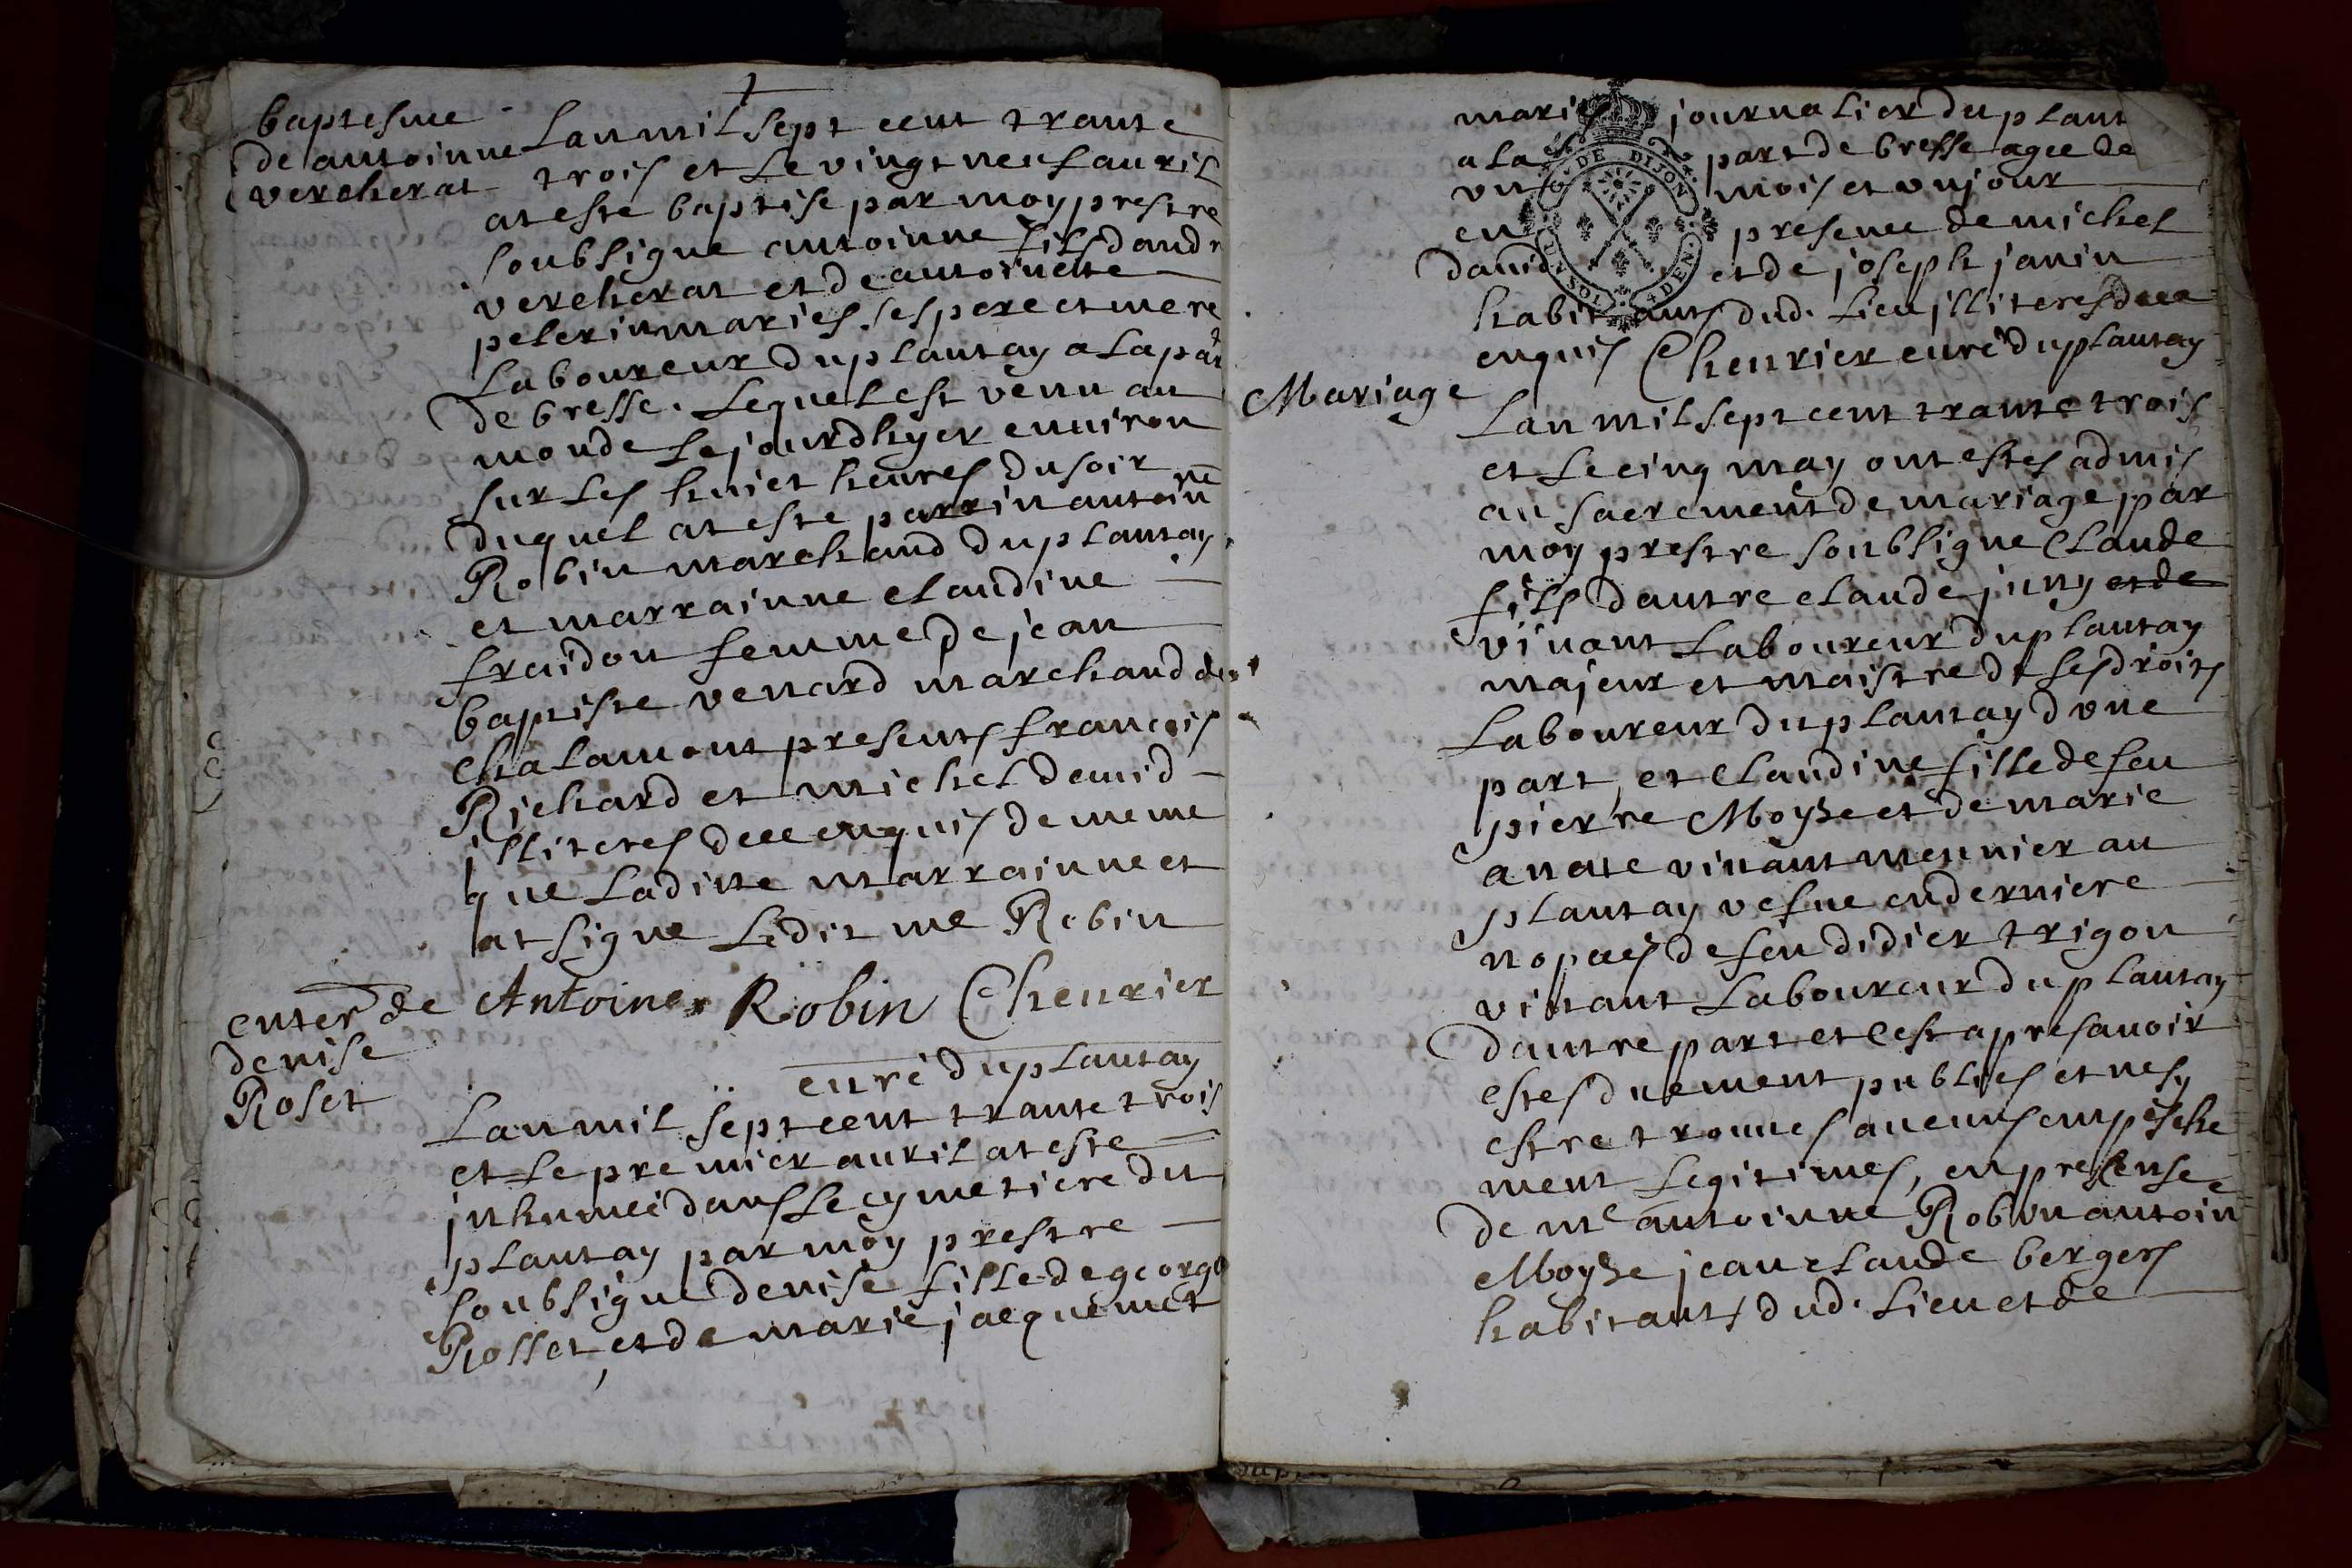 baptesme
de antoinne
vercherat
Lan mil sept cent trante
trois et le vingt neuf auril
at este baptise par moy prestre
soubsigne antoinne fils dandr
vercherat et de antoinette
pelerin maries ses pere et mere
Laboureur du plantay a la part
de bresse. Lequel est venu au
monde le jourdhyer enuiron
sur les huict heures du soir
duquel at este parrin antoinne
Robin marchand du plantay
et marrainne claudine
fraidon femme de jean
baptiste venard marchand de
Chalamont presents francois
Richard et michel demid
jlliteres dece enquis de meme
que Laditte marrainne et
at signe Ledit me Robin
Antoine Robin Cheurier
curé du plantay
enter de
denise
Roset
Lan mil sept cent trante trois
et Le premier auril at este
jnhumeé dans Le cymetiere du
plantay par moy prestre
soubsigne denise fille de george
Rosset, et de marie jacquemet
maries journalier du plant
a la part de bresse agee de
vn mois et vn jour
en presence de michel
et de joseph janin
habitants dud. Lieu jlliteres dece
enquis Cheurier curé du plantay
Mariage
Lan mil sept cent trante trois
et Le cinq may ont estes admis
au sacrement de mariage par
moy prestre soubsigne Claude
fils dautre claude juny et de
viuant Laboureur du plantay
majeur et maistre de ses droits
Laboureur du plantay dvne
part, et Claudine fille de feu
pierre Moyse et de marie
viuant meunier au
plantay vefue en derniere
nopces de feu didier trigon
viuant Laboureur du plantay
dautre part et cest apres auoir
estes duement publies et nesy
estre trouues aucuns empesche
ment Legitimes, en presense
de me antoinne Robin antoin
Moyse jean claude bergers
habitants dud. Lieu et de
DE DIJON